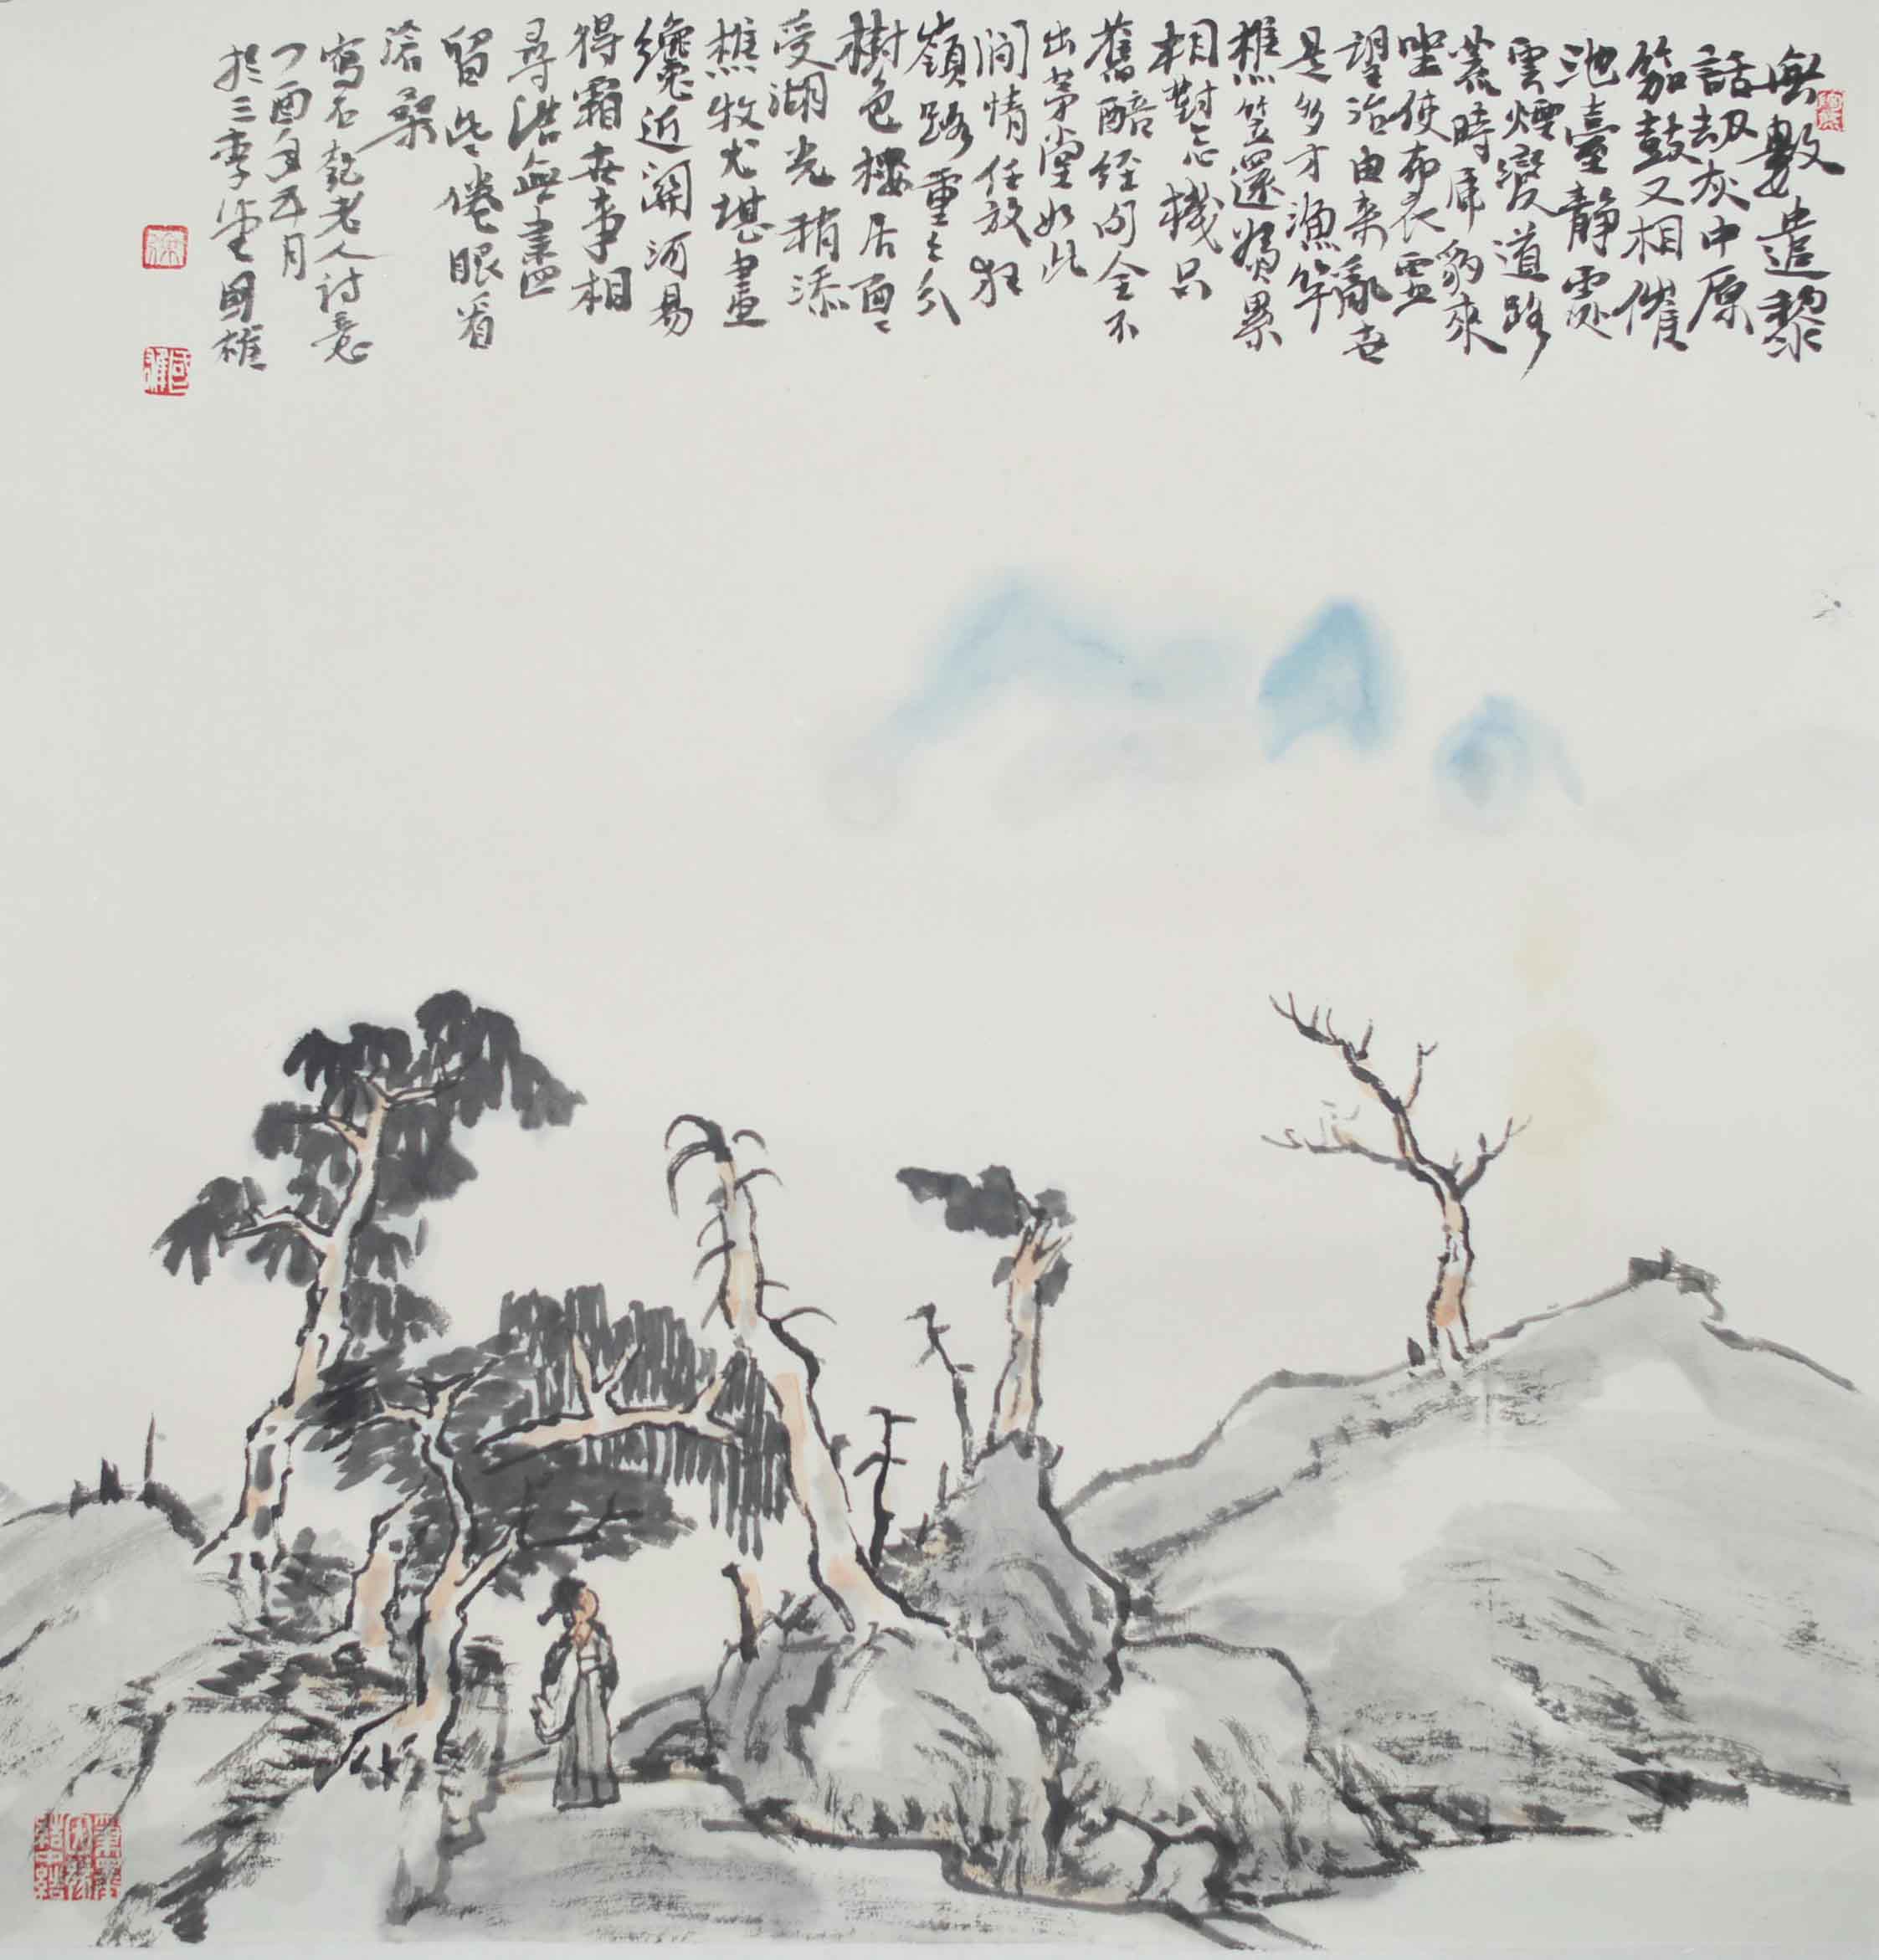 無數遺黎
話劫灰中原
笳鼓又相催
池臺靜處
雲煙變道路
荒時虎豹來
坐使布衣靈
望治由來亂世
是多才漁竿
樵笠還為累
相對忘機只
舊醅 經旬全不
出茅堂如此
閒情任放狂
嶺路重重分
樹色樓居面面
受湖光稍添
樵牧尤堪畫
纔近關河易
得霜世事相
尋浩無盡
留此倦眼看
滄桑
寫石乾老人詩意
丁酉年五月
於三李堂國雄
國雄